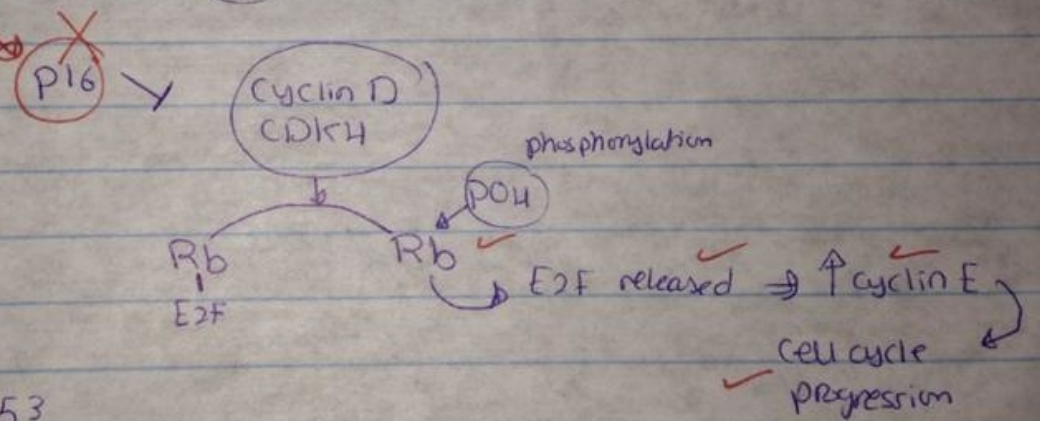 p16
Cyclin D
CDK4
phosphorylation
PO4
Rb
Rb
E2F
E2F released ⇒ ↑ cyclin E
Cell cycle
progression
53